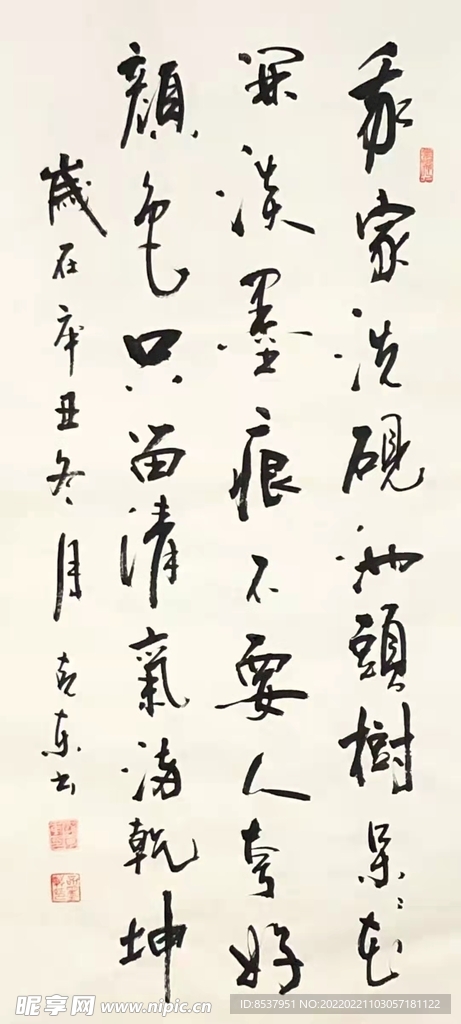 我家洗硯池頭樹朵〻花
開淡墨痕不要人夸好
顔色只留清氣滿乾坤
歲在辛丑冬月 东书
昵享网 www.nipic.cn
ID:8537951 NO:20220221103057181122